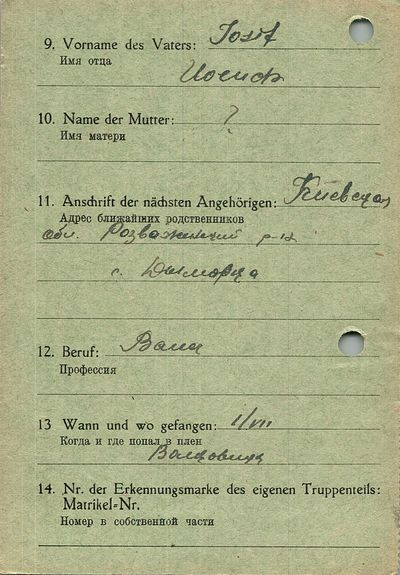 9. Vorname des Vaters: Josif
Имя отца
Иосиф
10. Name der Mutter: ?
Имя матери
11. Anschrift der nächsten Angehörigen: Киевская
Адрес ближайших родственников
обл. Розважевский р-н
с.
12. Beruf:
Профессия
13 Wann und wo gefangen: 1/VII
Когда и где попал в плен
14. Nr. der Erkennungsmarke des eigenen Truppenteils:
Matrikel-Nr.
Номер в собственной части